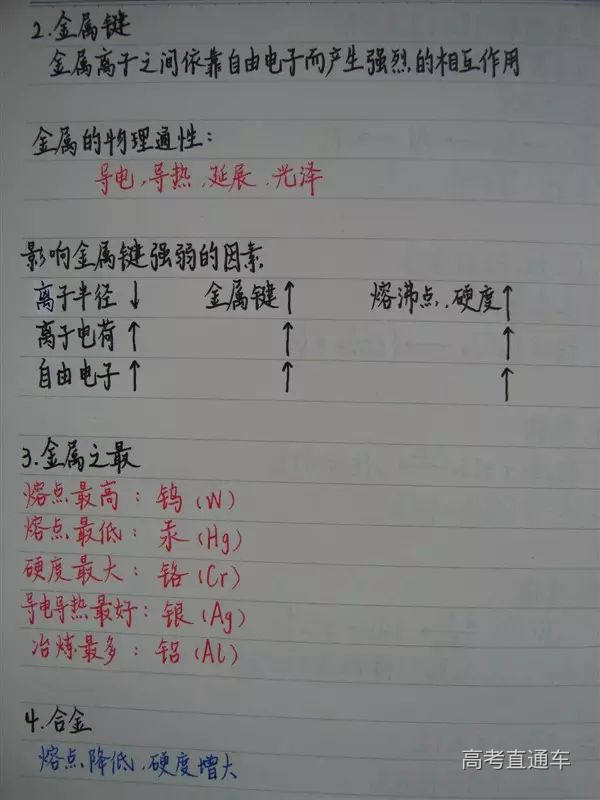 2.金属键
金属离子之间依靠自由电子而产生强烈的相互作用
金属的物理通性:
导电,导热,延展.光泽
影响金属键强弱的因素
离子半径↓ 金属键↑ 熔沸点.硬度↑
离子电荷↑ ↑ ↑
自由电子↑ ↑ ↑
3.金属之最
熔点最高:钨(W)
熔点最低:汞(Hg)
硬度最大:铬(Cr)
导电导热最好:银(Ag)
冶炼最多:铝(Al)
4.合金
熔点降低.硬度增大
高考直通车